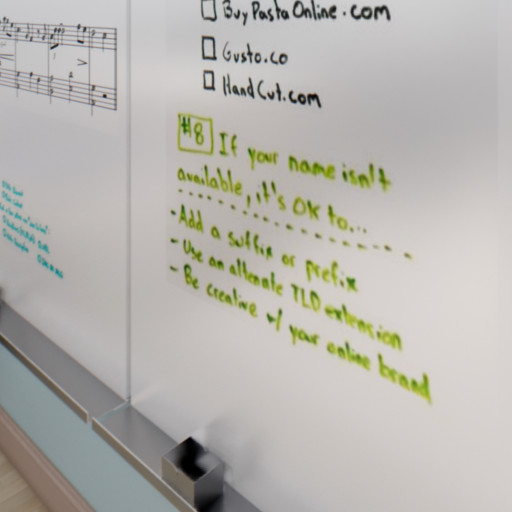 BuyPastaOnline.com
Gusto.co
HandCut.com
#8 If your name isn't
available, it's OK to...
- Add a suffix or prefix
- Use an alternate TLD extension
- Be creative w/ your online brand